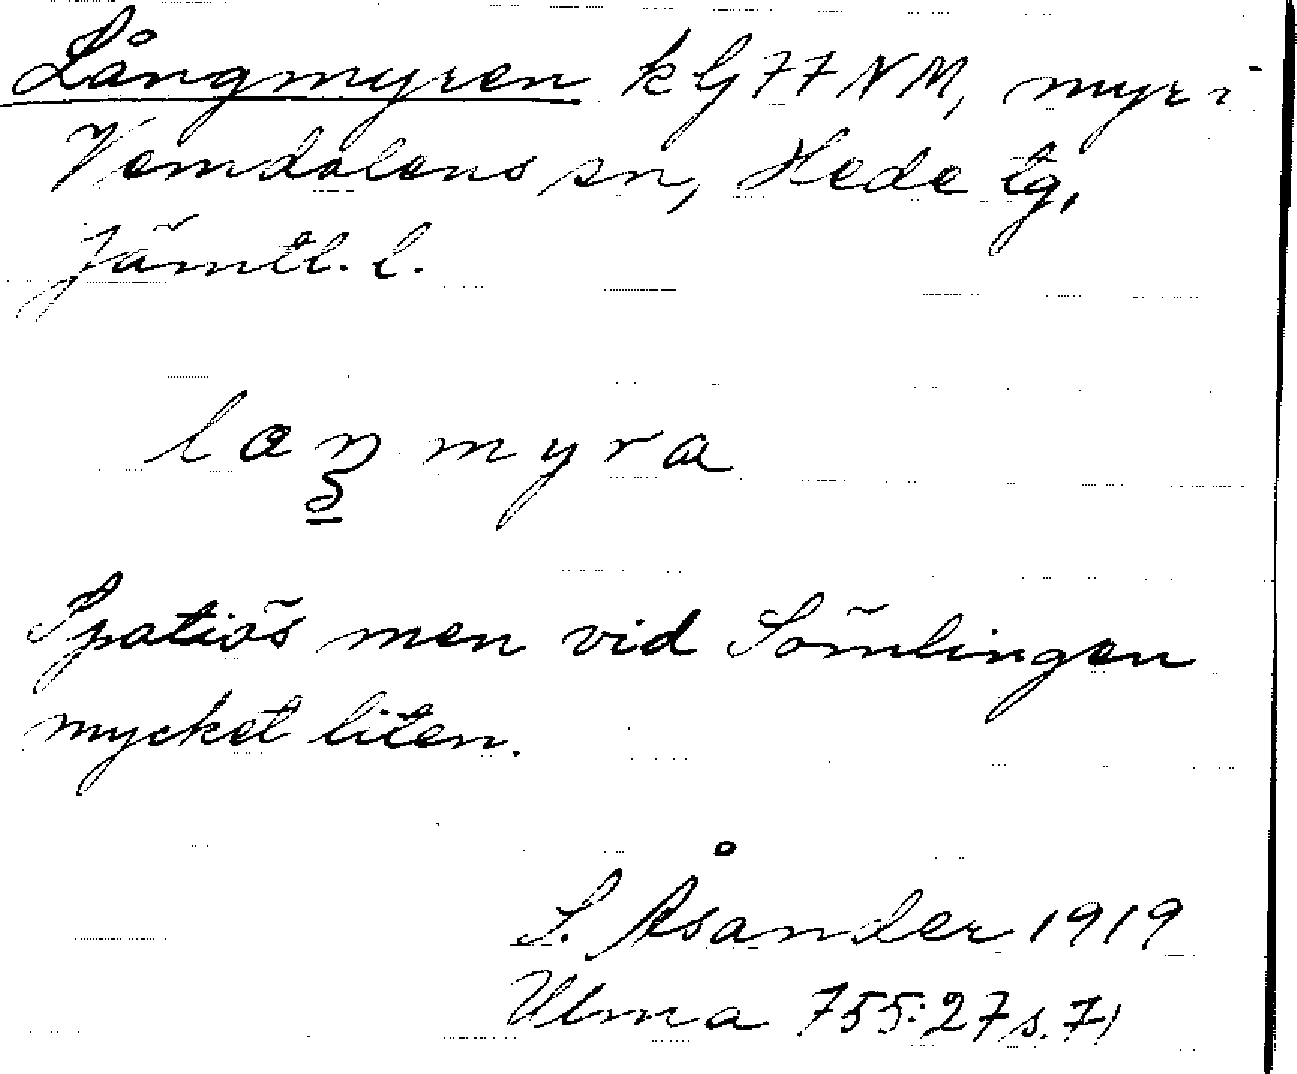 Långmyren k G 77 NM, myr i
Vemdalens sn, Hede tg,
Jämtl. l.
laŋmyra
Spatiös men vid Sömlingen
mycket liten.
S. Åsander 1919
Ulma 755:27 s. 71